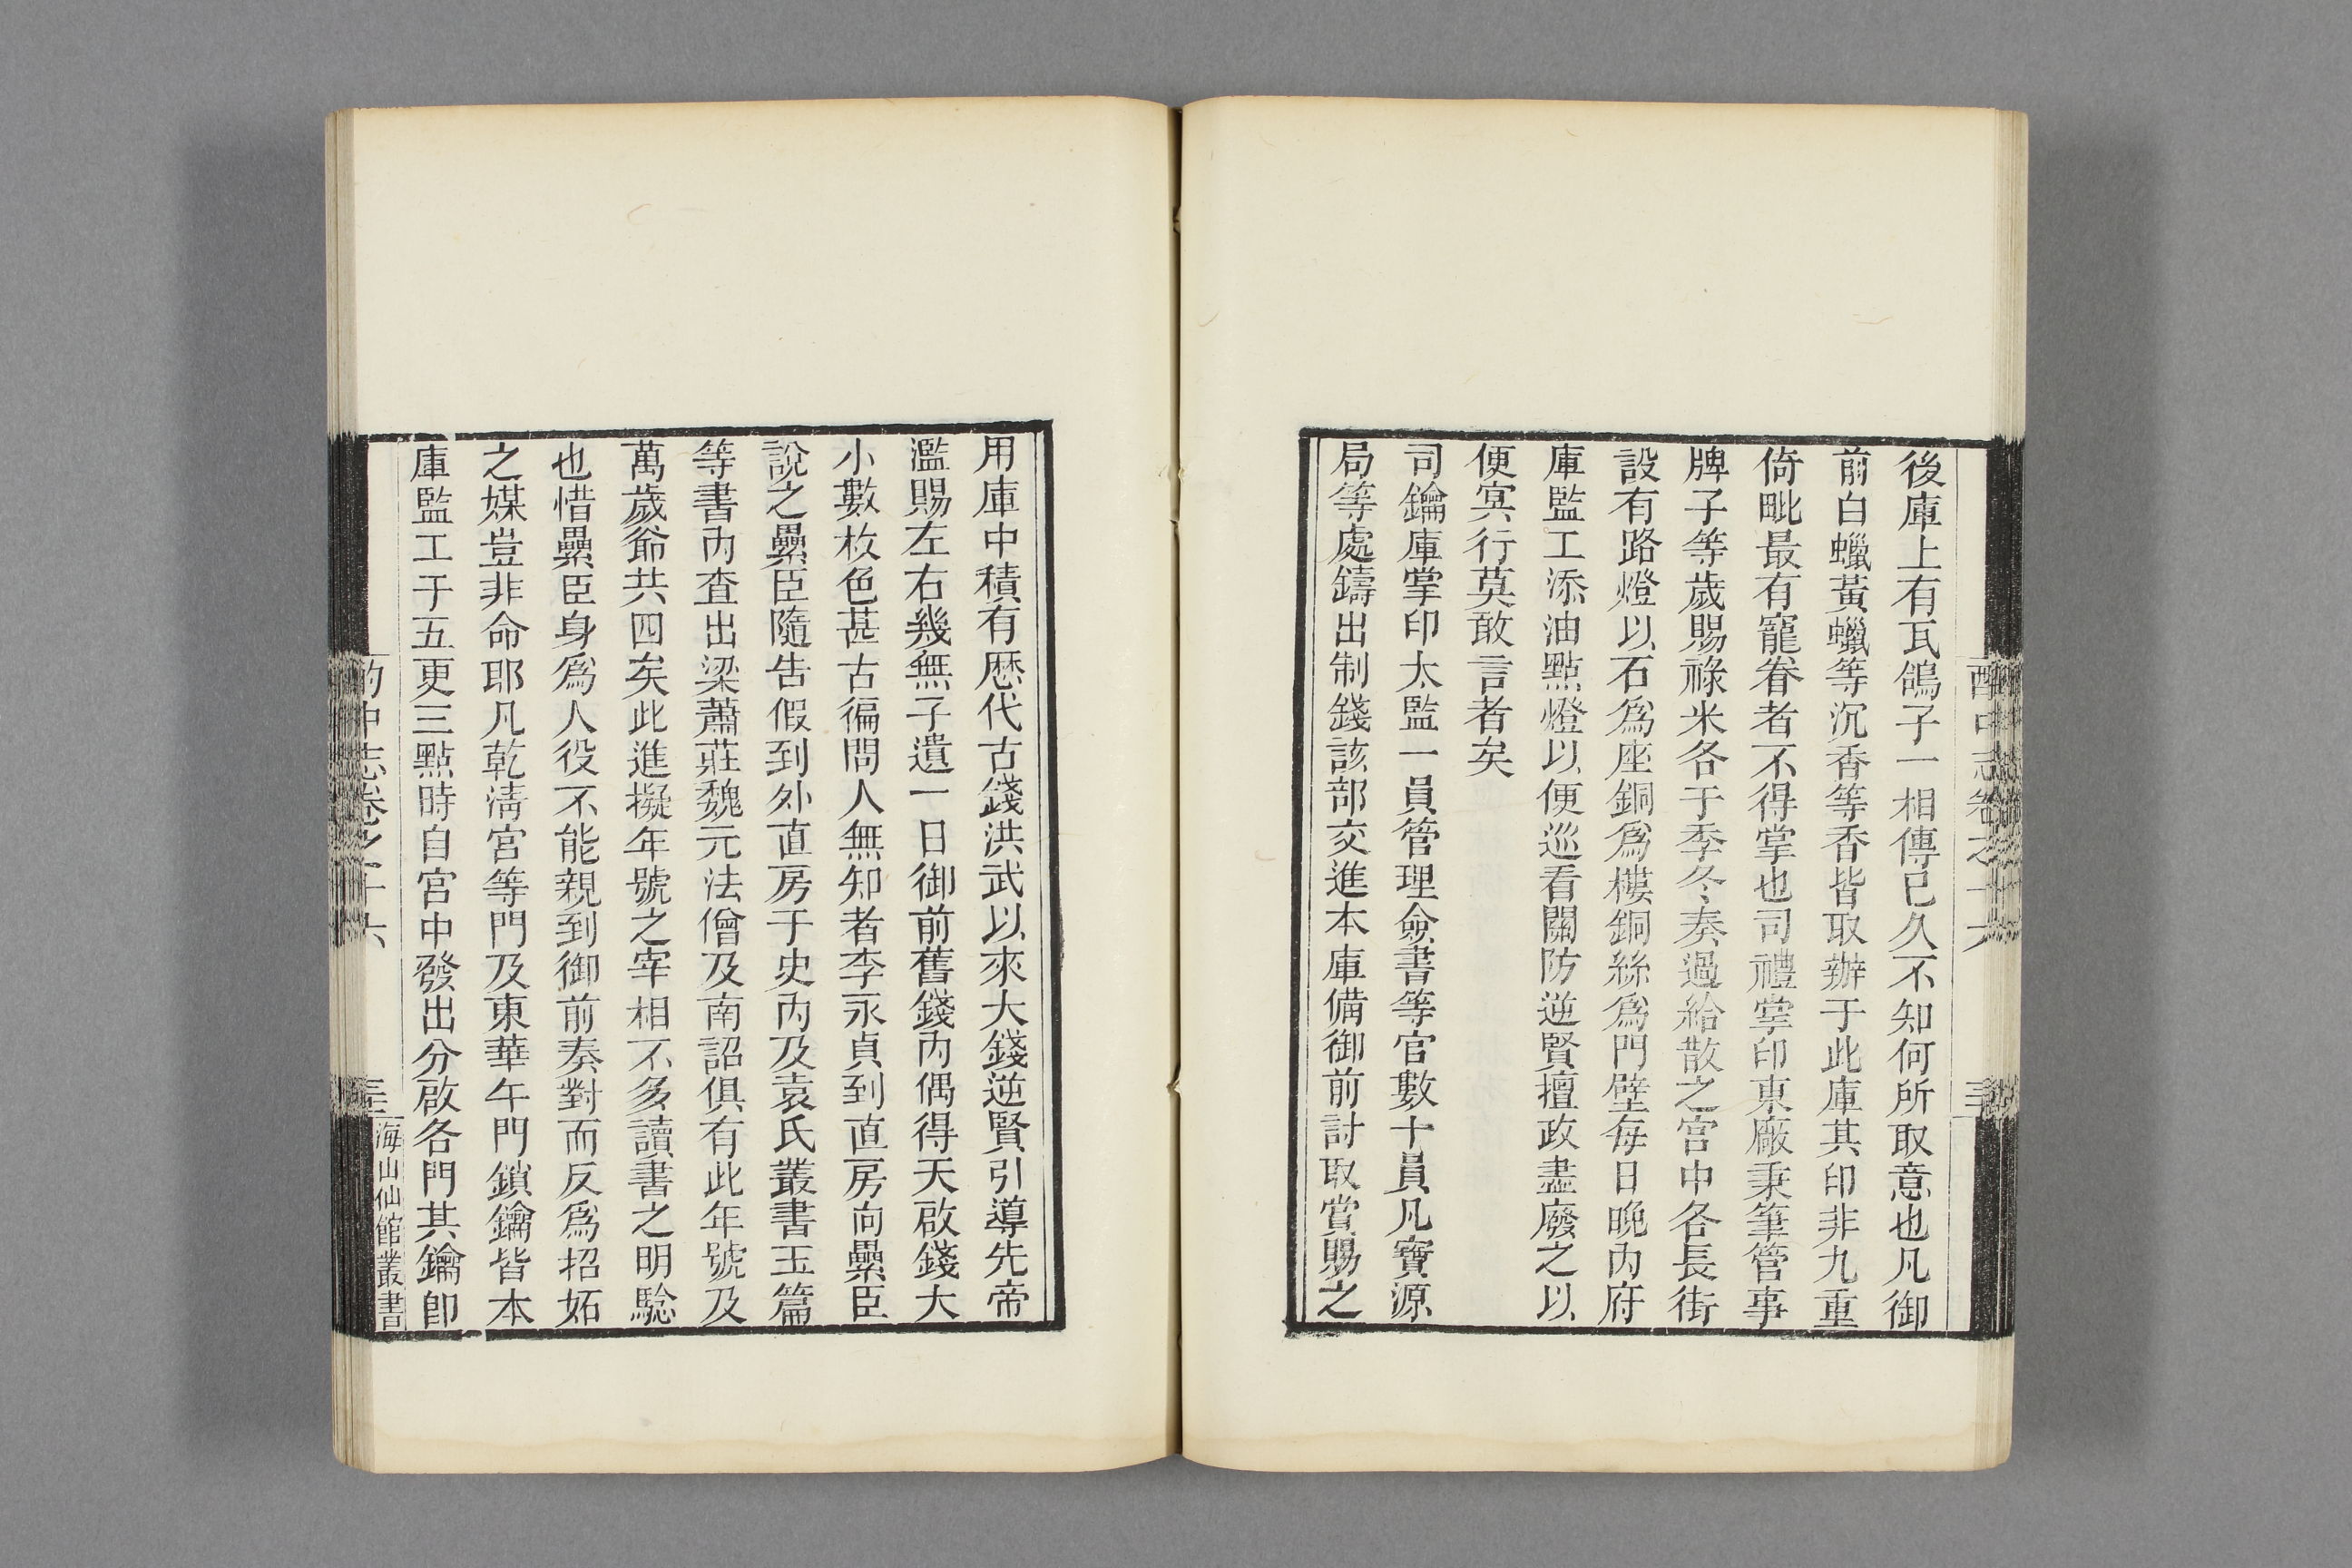 後庫上有瓦鴿子一相傳已久不知何所取意也凡御
前白蠟黃蠟等沉香等香皆取辦于此庫其印非九重
倚毗最有寵眷者不得掌也司禮掌印東廠秉筆管事
牌子等歲賜祿米各于季冬奏過給散之宮中各長街
設有路燈以石爲座銅爲樓銅絲爲門壁每日晚內府
庫監工添油點燈以便巡看關防逆賢擅政盡廢之以
便冥行莫敢言者矣
司鑰庫掌印太監一員管理僉書等官數十員凡寶源
局等處鑄出制錢該部交進本庫備御前討取賞賜之
用庫中積有歷代古錢洪武以來大錢逆賢引導先帝
濫賜左右幾無子遺一日御前舊錢內偶得天啟錢大
小數枚色甚古徧問人無知者李永貞到直房向纍臣
說之纍臣隨告假到外直房于史內及袁氏叢書玉篇
等書內查出梁蕭莊魏元法僧及南詔俱有此年號及
萬歲爺共四矣此進擬年號之宰相不多讀書之明騐
也惜纍臣身爲人役不能親到御前奏對而反爲招妬
之媒豈非命耶凡乾清宮等門及東華午門鎖鑰皆本
庫監工于五更三點時自宮中發出分啟各門其鑰卽
酌中志卷之十六
海山仙館叢書